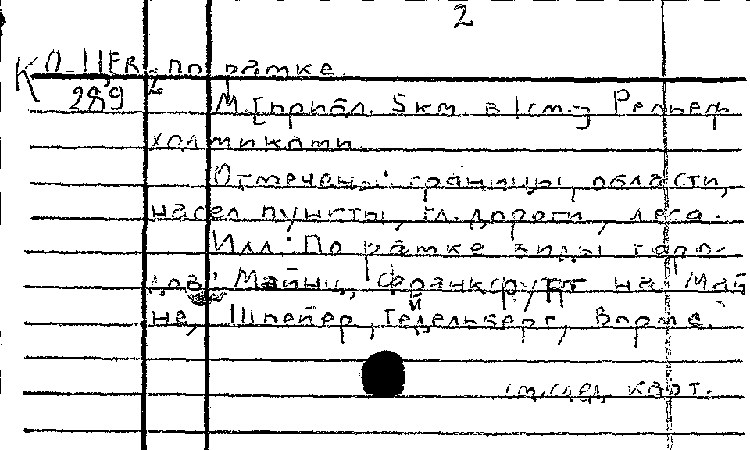 2
К О-ЦЕR по рамке.
28,9 2 М. [прибл. 5 км. в 1 см.] Рельеф
холмиками.
Отмечены: границы, области,
насел. пункты, гл. дороги, леса.
Илл.: По рамке виды горо-
дов: Майнц, Франкфурт на Май
не, Шпейер, Гейдельберг, Вормс.
см. след. карт.